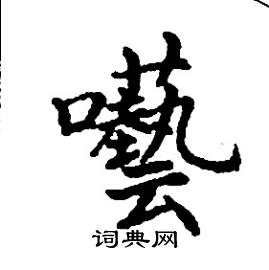 囈
词典网